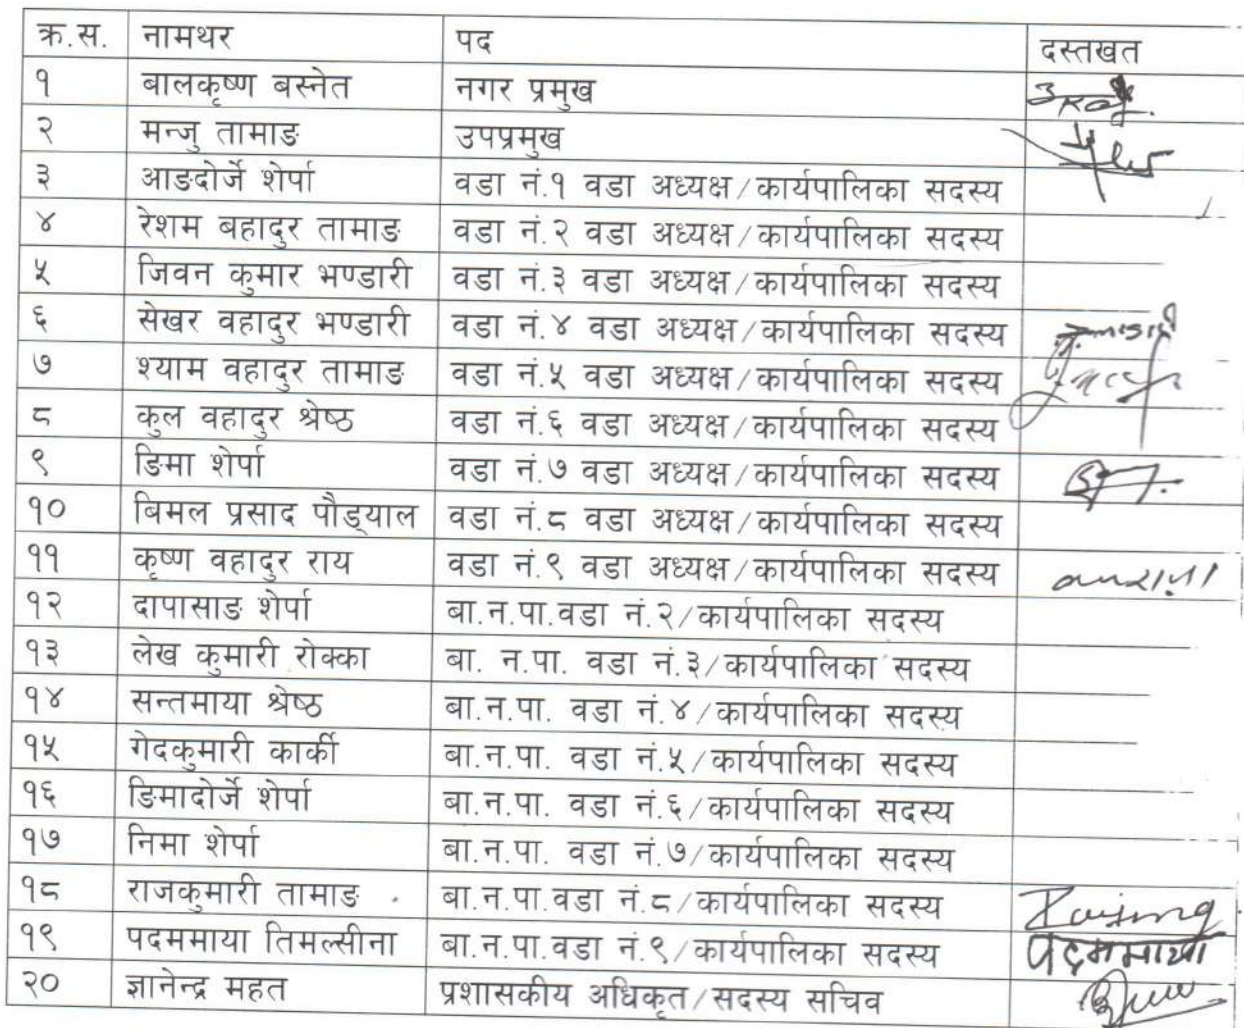 क्र.स. नामथर पद दस्तखत
१ बालकृष्ण बस्नेत नगर प्रमुख
२ मन्जु तामाङ उपप्रमुख
३ आङदोर्जे शेर्पा वडा नं.१ वडा अध्यक्ष/कार्यपालिका सदस्य
४ रेशम बहादुर तामाङ वडा नं.२ वडा अध्यक्ष/कार्यपालिका सदस्य
५ जिवन कुमार भण्डारी वडा नं.३ वडा अध्यक्ष/कार्यपालिका सदस्य
६ सेखर वहादुर भण्डारी वडा नं.४ वडा अध्यक्ष/कार्यपालिका सदस्य
७ श्याम वहादुर तामाङ वडा नं.५ वडा अध्यक्ष/कार्यपालिका सदस्य
८ कुल वहादुर श्रेष्ठ वडा नं.६ वडा अध्यक्ष/कार्यपालिका सदस्य
९ ङिमा शेर्पा वडा नं.७ वडा अध्यक्ष/कार्यपालिका सदस्य
१० बिमल प्रसाद पौड्याल वडा नं.८ वडा अध्यक्ष/कार्यपालिका सदस्य
११ कृष्ण वहादुर राय वडा नं.९ वडा अध्यक्ष/कार्यपालिका सदस्य
१२ दापासाङ शेर्पा बा.न.पा.वडा नं.२/कार्यपालिका सदस्य
१३ लेख कुमारी रोक्का बा. न.पा. वडा नं.३/कार्यपालिका सदस्य
१४ सन्तमाया श्रेष्ठ बा.न.पा. वडा नं.४/कार्यपालिका सदस्य
१५ गेदकुमारी कार्की बा.न.पा. वडा नं.५/कार्यपालिका सदस्य
१६ ङिमादोर्जे शेर्पा बा.न.पा. वडा नं.६/कार्यपालिका सदस्य
१७ निमा शेर्पा बा.न.पा. वडा नं.७/कार्यपालिका सदस्य
१८ राजकुमारी तामाङ बा.न.पा.वडा नं.८/कार्यपालिका सदस्य
१९ पदममाया तिमल्सीना बा.न.पा.वडा नं.९/कार्यपालिका सदस्य पदममाया
२० ज्ञानेन्द्र महत प्रशासकीय अधिकृत/सदस्य सचिव